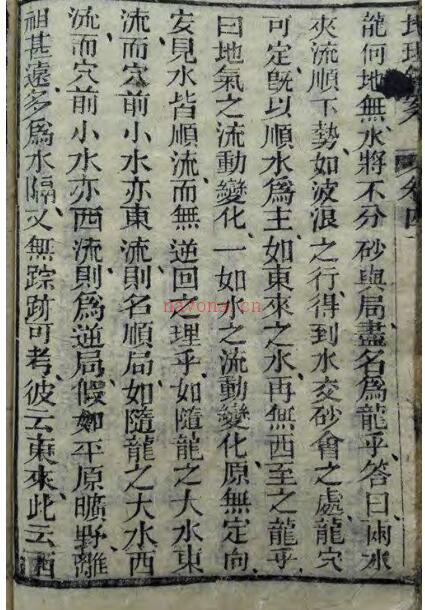 地理 卷四
龍何地無水將不分砂與局盡名爲龍乎答曰兩水
夾流順下勢如波浪之行得到水交砂會之處龍穴
可定旣以順水爲主如東來之水再無西至之龍乎
曰地氣之流動變化一如水之流動變化原無定向
妄見水皆順流而無逆回之理乎如隨龍之大水東
流而穴前小水亦東流則名順局如隨龍之大水西
流而穴前小水亦西流則爲逆局假如平原曠野離
祖甚遠多爲水隔又無踪跡可考彼云東來此云西
nayona.cn